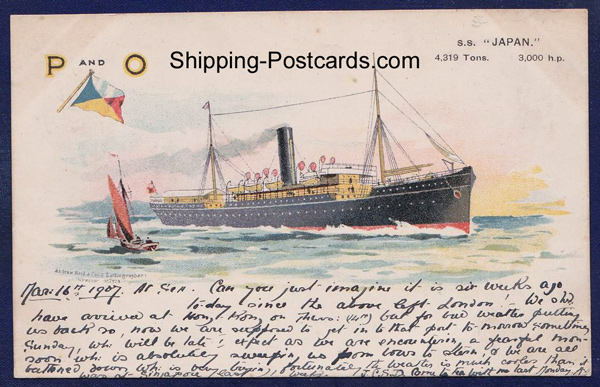 P AND O
Shipping-Postcards.com
S.S. "JAPAN."
4,319 Tons. 3,000 h.p.
Mar: 16th 1907. At Sea. Can you just imagine it is six weeks ago
to-day since the above left London! We shd
have arrived at Hong Kong on Thurs: (14th) but for bad weather putting
us back so, now we are supposed to get in to that port to-morrow sometime,
Sunday, whi will be late! expect as we are encountering a fearful mon-
soon whi is absolutely sweeping us from bows to stern & we are all
battened down, whi is very trying, fortunately the weather is much cooler than it
was at Singapore